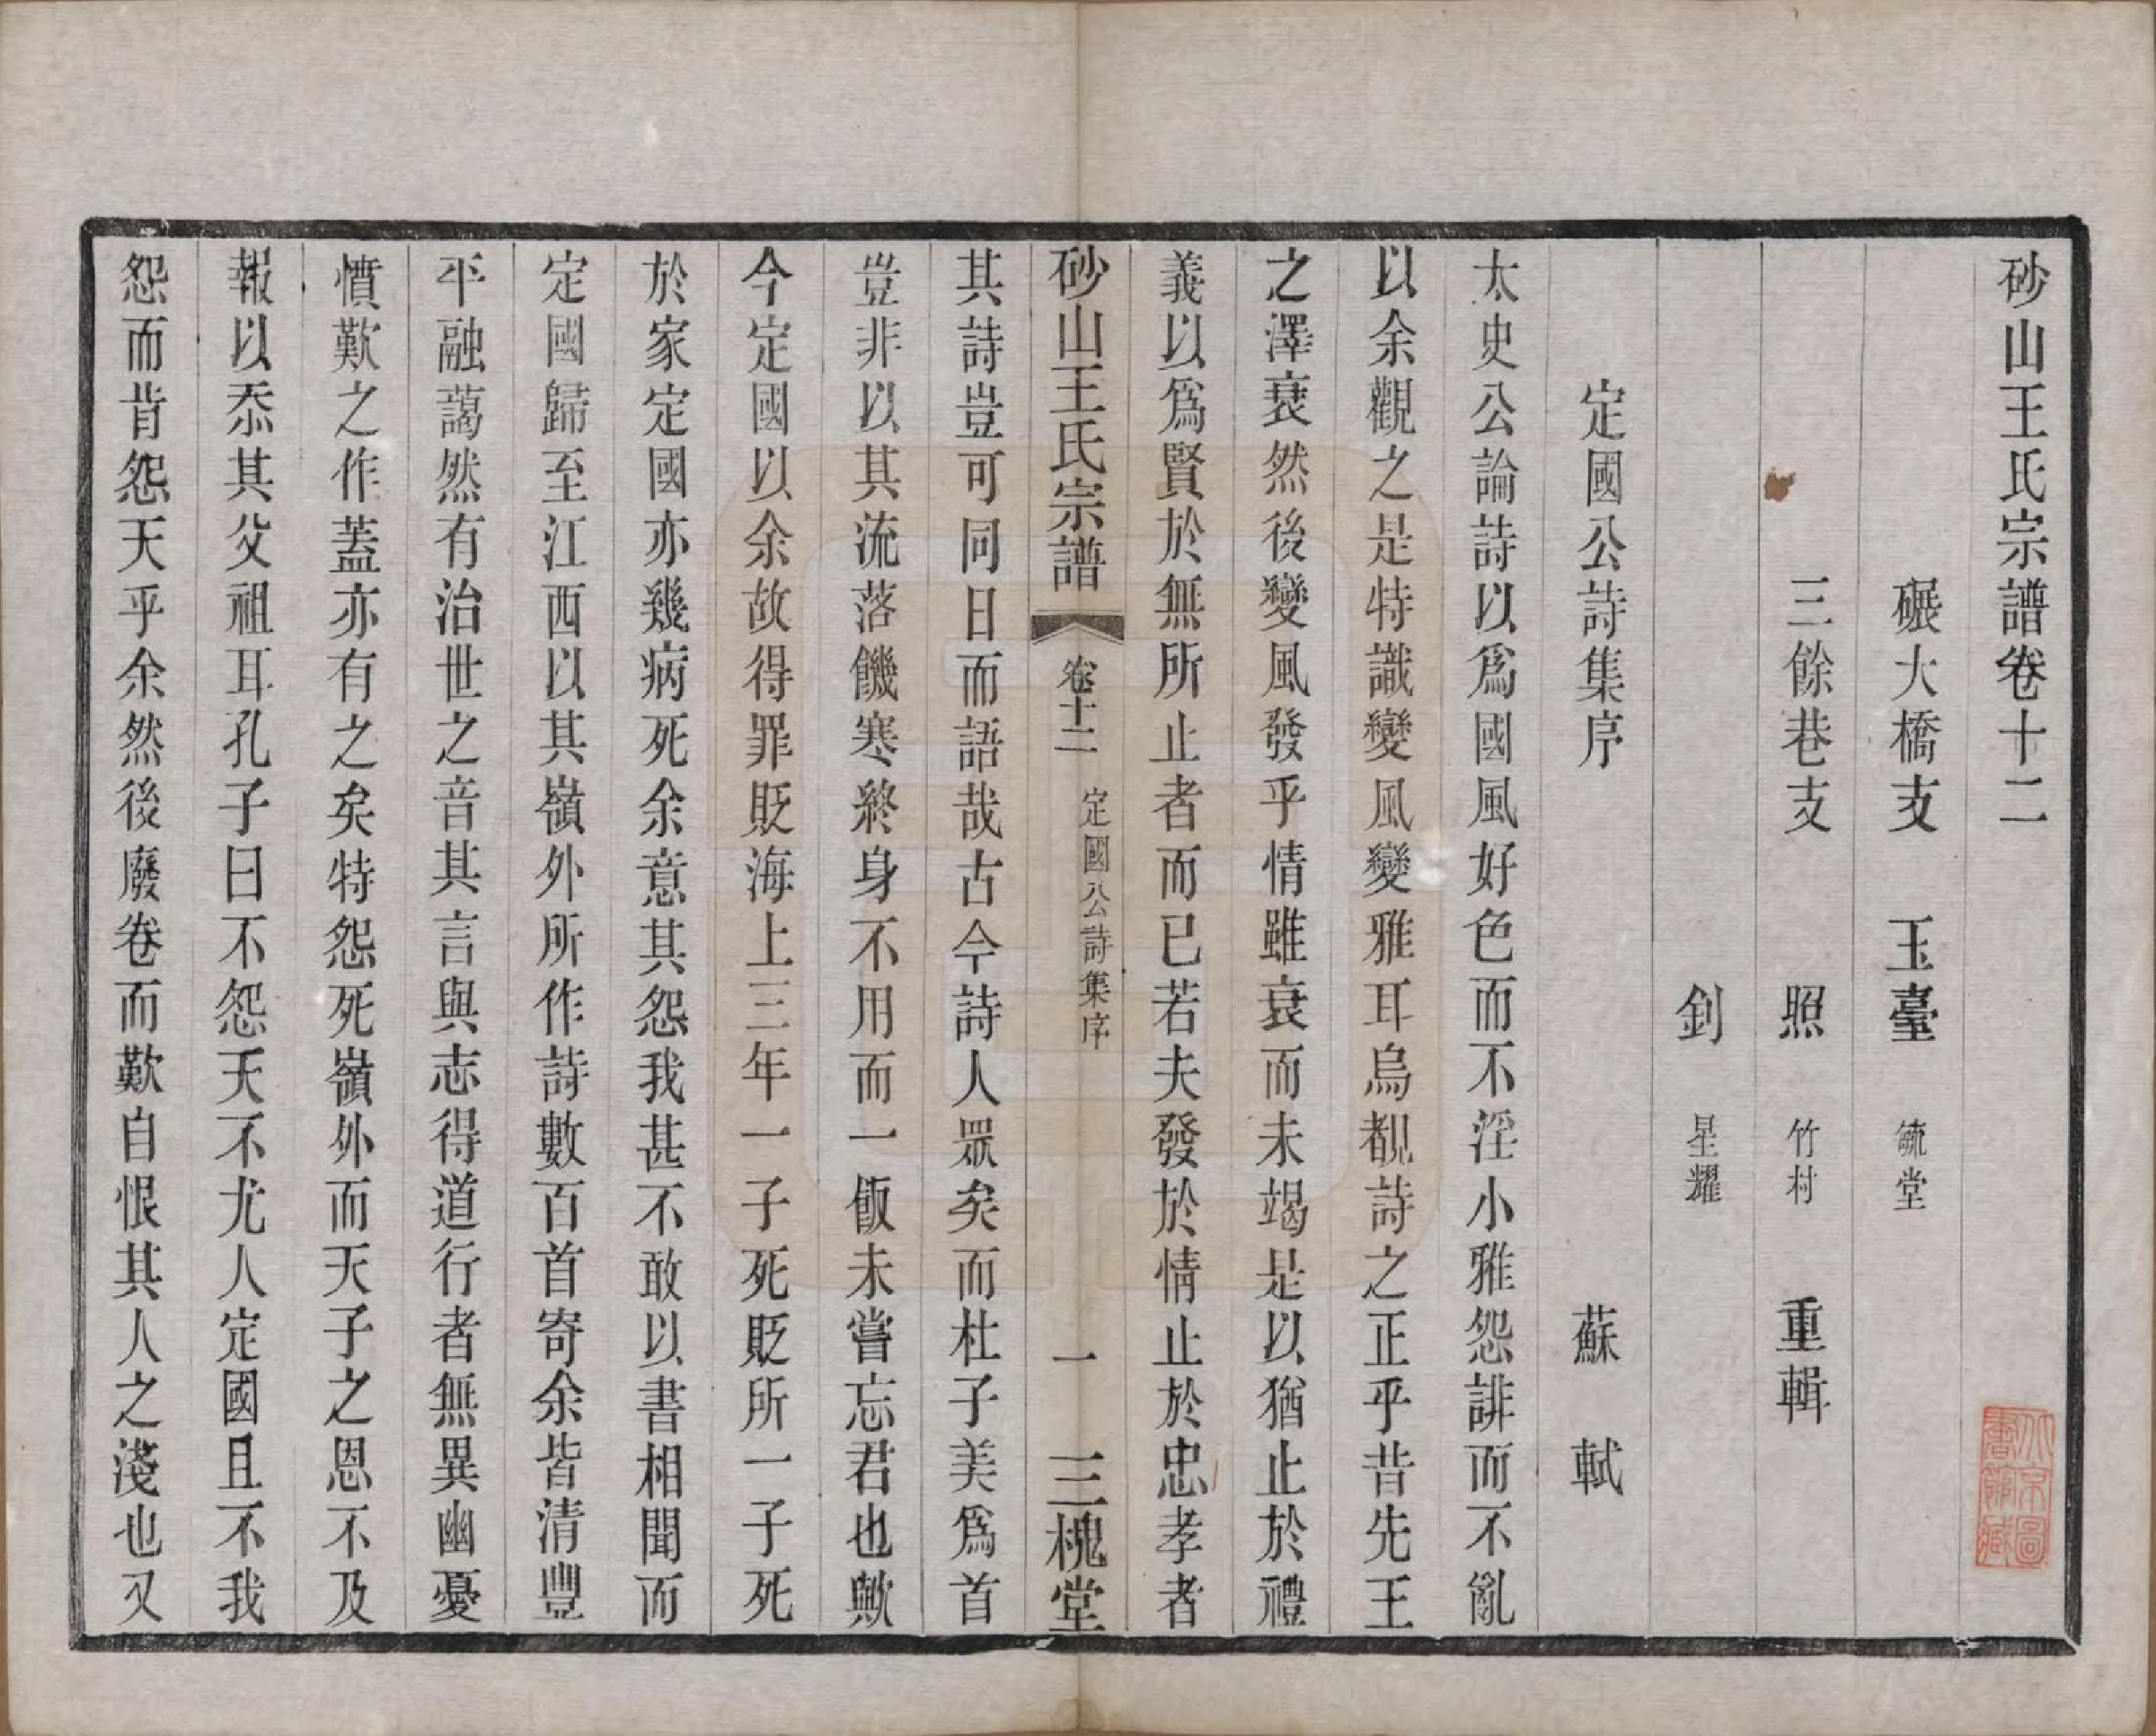 砂山王氏宗譜卷十二
碾大橋支　玉臺　毓堂
三餘巷支　照　竹村　重輯
釗　星耀
定國公詩集序　蘇軾
太史公論詩以爲國風好色而不淫小雅怨誹而不亂
以余觀之是特識變風變雅耳烏覩詩之正乎昔先王
之澤衰然後變風發乎情雖衰而未竭是以猶止於禮
義以爲賢於無所止者而已若夫發於情止於忠孝者
砂山王氏宗譜　卷十二　定國公詩集序　一　三槐堂
其詩豈可同日而語哉古今詩人眾矣而杜子美爲首
豈非以其流落饑寒終身不用而一飯未嘗忘君也歟
今定國以余故得罪貶海上三年一子死貶所一子死
於家定國亦幾病死余意其怨我甚不敢以書相聞而
定國歸至江西以其嶺外所作詩數百首寄余皆清豐
平融藹然有治世之音其言與志得道行者無異幽憂
憤歎之作蓋亦有之矣特怨死嶺外而天子之恩不及
報以忝其父祖耳孔子曰不怨天不尤人定國且不我
怨而肯怨天乎余然後廢卷而歎自恨其人之淺也又